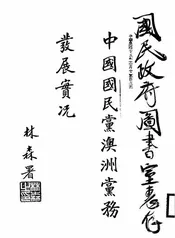 國民政府圖書室惠存
中國國民黨澳洲黨務
發展實况
林森署